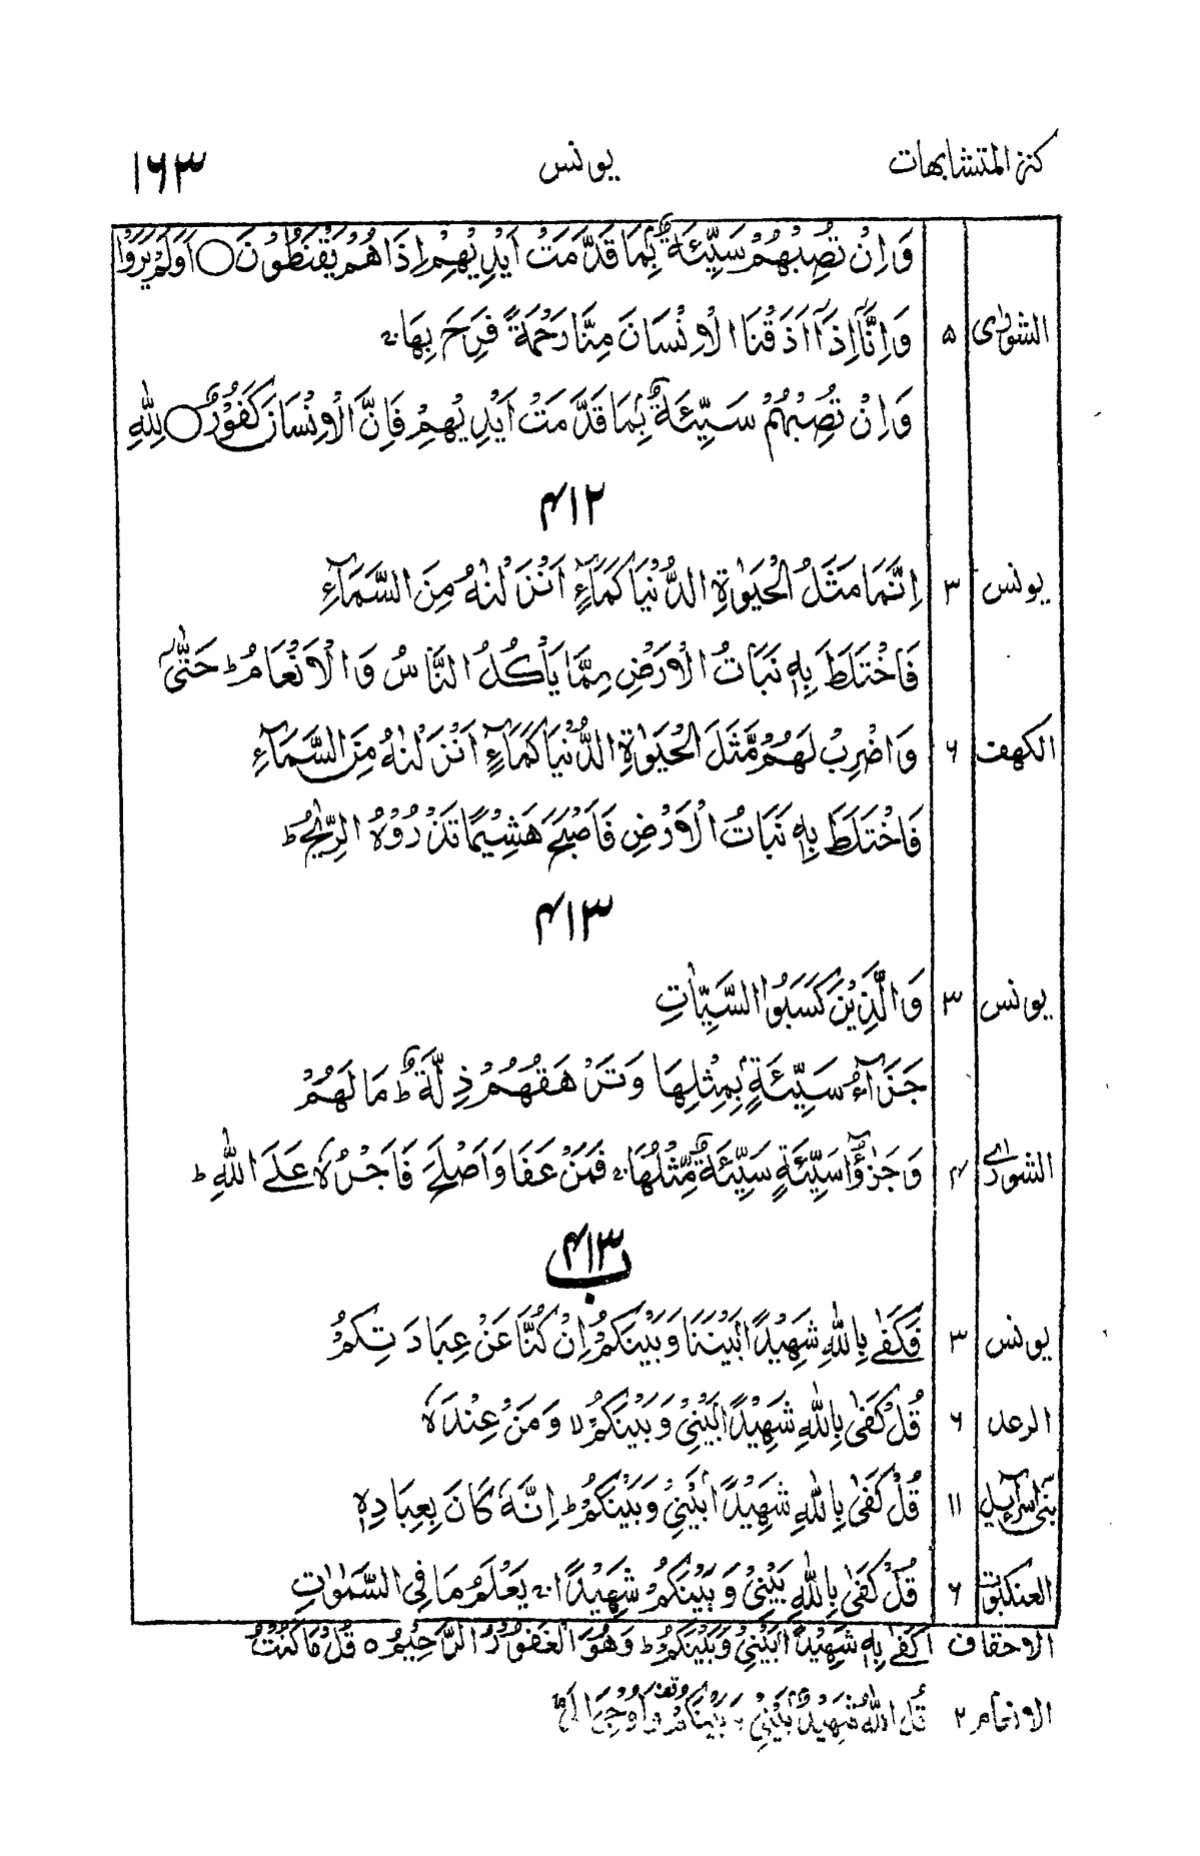 كنز المتشابهات يونس ۱۶۳
وَاِنْ تُصِبْهُمْ سَيِّئَةٌۢ بِمَا قَدَّمَتْ اَيْدِيْهِمْ اِذَا هُمْ يَقْنَطُوْنَ ○ اَوَلَمْ يَرَوْا
الشورٰى ۵ وَاِنَّآ اِذَآ اَذَقْنَا الْاِنْسَانَ مِنَّا رَحْمَةً فَرِحَ بِهَا ۚ
وَاِنْ تُصِبْهُمْ سَيِّئَةٌۢ بِمَا قَدَّمَتْ اَيْدِيْهِمْ فَاِنَّ الْاِنْسَانَ كَفُوْرٌ ○ لِلّٰهِ
۴۱۲
يونس ۳ اِنَّمَا مَثَلُ الْحَيٰوةِ الدُّنْيَا كَمَآءٍ اَنْزَلْنٰهُ مِنَ السَّمَآءِ
فَاخْتَلَطَ بِهٖ نَبَاتُ الْاَرْضِ مِمَّا يَاْكُلُ النَّاسُ وَالْاَنْعَامُ ؕ حَتّٰىٓ
الكهف ۶ وَاضْرِبْ لَهُمْ مَّثَلَ الْحَيٰوةِ الدُّنْيَا كَمَآءٍ اَنْزَلْنٰهُ مِنَ السَّمَآءِ
فَاخْتَلَطَ بِهٖ نَبَاتُ الْاَرْضِ فَاَصْبَحَ هَشِيْمًا تَذْرُوْهُ الرِّيٰحُ ؕ
۴۱۳
يونس ۳ وَالَّذِيْنَ كَسَبُوا السَّيِّاٰتِ
جَزَآءُ سَيِّئَةٍۭ بِمِثْلِهَا وَتَرْهَقُهُمْ ذِلَّةٌ ؕ مَا لَهُمْ
الشورٰى ۴ وَجَزٰٓؤُا سَيِّئَةٍ سَيِّئَةٌ مِّثْلُهَا ۚ فَمَنْ عَفَا وَاَصْلَحَ فَاَجْرُهٗ عَلَى اللّٰهِ ؕ
۴۱۳ ب
يونس ۳ فَكَفٰى بِاللّٰهِ شَهِيْدًۢا بَيْنَنَا وَبَيْنَكُمْ اِنْ كُنَّا عَنْ عِبَادَتِكُمْ
الرعد ۶ قُلْ كَفٰى بِاللّٰهِ شَهِيْدًۢا بَيْنِيْ وَبَيْنَكُمْ ۙ وَمَنْ عِنْدَهٗ
بنى اسرآءيل ۱۱ قُلْ كَفٰى بِاللّٰهِ شَهِيْدًۢا بَيْنِيْ وَبَيْنَكُمْ ؕ اِنَّهٗ كَانَ بِعِبَادِهٖ
العنكبوت ۶ قُلْ كَفٰى بِاللّٰهِ بَيْنِيْ وَبَيْنَكُمْ شَهِيْدًا ۚ يَعْلَمُ مَا فِى السَّمٰوٰتِ
الاحقاف ۱ كَفٰى بِهٖ شَهِيْدًۢا بَيْنِيْ وَبَيْنَكُمْ ؕ وَهُوَ الْغَفُوْرُ الرَّحِيْمُ ○ قُلْ مَا كُنْتُ
الانعام ۲ قُلِ اللّٰهُ شَهِيْدٌۢ بَيْنِيْ وَبَيْنَكُمْ وَاُوْحِىَ اِلَىَّ